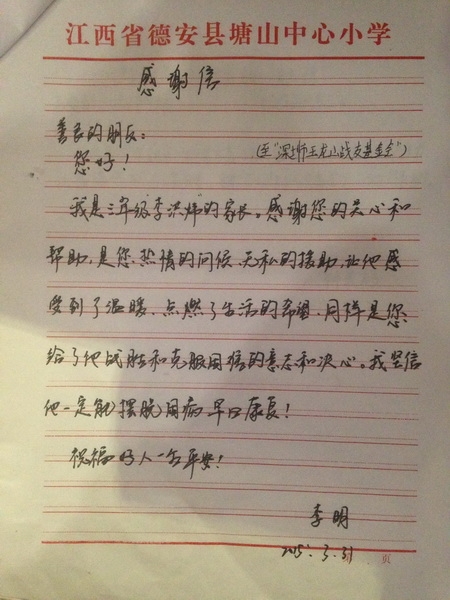 江西省德安县塘山中心小学
感谢信
善良的朋友：
您好！
（至“深圳市王龙山战友基金会”）
我是三年级李洪炜的家长。感谢您的关心和
帮助，是您热情的问候、无私的援助，让他感
受到了温暖，点燃了生活的希望，同样是您
给了他战胜和克服困难的意志和决心。我坚信
他一定能摆脱困病早日康复！
祝福好人一生平安！
李明
2015.3.31
页